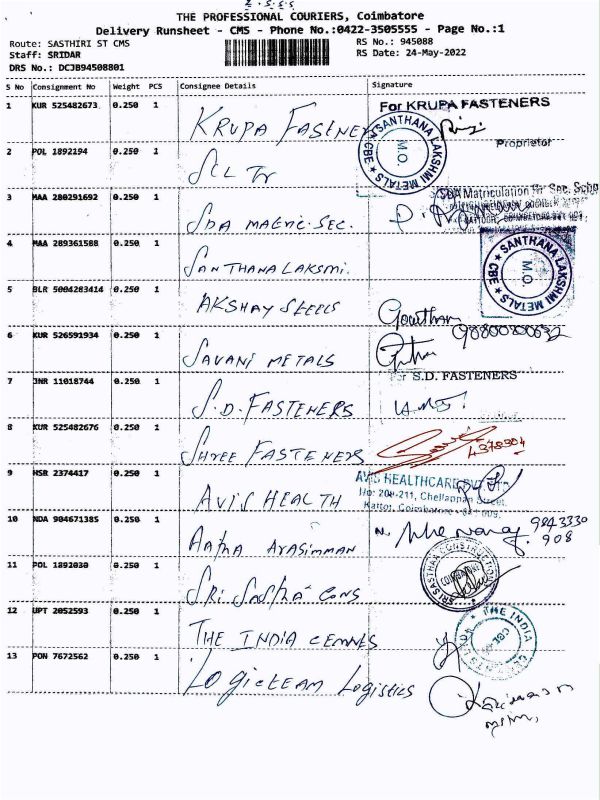 THE PROFESSIONAL COURIERS, Coimbatore
Delivery Runsheet - CMS - Phone No.:0422-3505555 - Page No.:1
Route: SASTHIRI ST CMS RS No.: 945088
Staff: SRIDAR RS Date: 24-May-2022
DRS No.: DCJB94508801
S No Consignment No Weight PCS Consignee Details Signature
1 KUR 525482673 0.250 1 KRUPA FASTNERS For KRUPA FASTENERS
Proprietor
SANTHANA LAKSHMI METALS CBE M.O.
2 POL 1892194 0.250 1
3 MAA 280291692 0.250 1 SDA MATRIC. SEC. SDA Matriculation Hr Sec. Scho
4 MAA 289361588 0.250 1 SANTHANA LAKSMI.
SANTHANA LAKSHMI METALS CBE M.O.
5 BLR 5004283414 0.250 1 AKSHAY STEELS Gowtham
6 KUR 526591934 0.250 1 SAVANI METALS
7 JNR 11018744 0.250 1 S.D. FASTENERS For S.D. FASTENERS
8 KUR 525482676 0.250 1 SHREE FASTENERS
9 HSR 2374417 0.250 1 AVIS HEALTH AVIS HEALTHCARE PVT
No: 209-211, Chellappan Street,
Kattor, Coimbatore - 641 009.
10 NDA 904671385 0.250 1 9843330
908
11 POL 1892030 0.250 1 SRI SASTHA CONS SRI SASTHAA CONSTRUCTION COIMBATORE
12 UPT 2052593 0.250 1 THE INDIA CEMNES THE INDIA CEMENTS CBE
13 PON 7672562 0.250 1 LOGICTEAM LOGISTICS